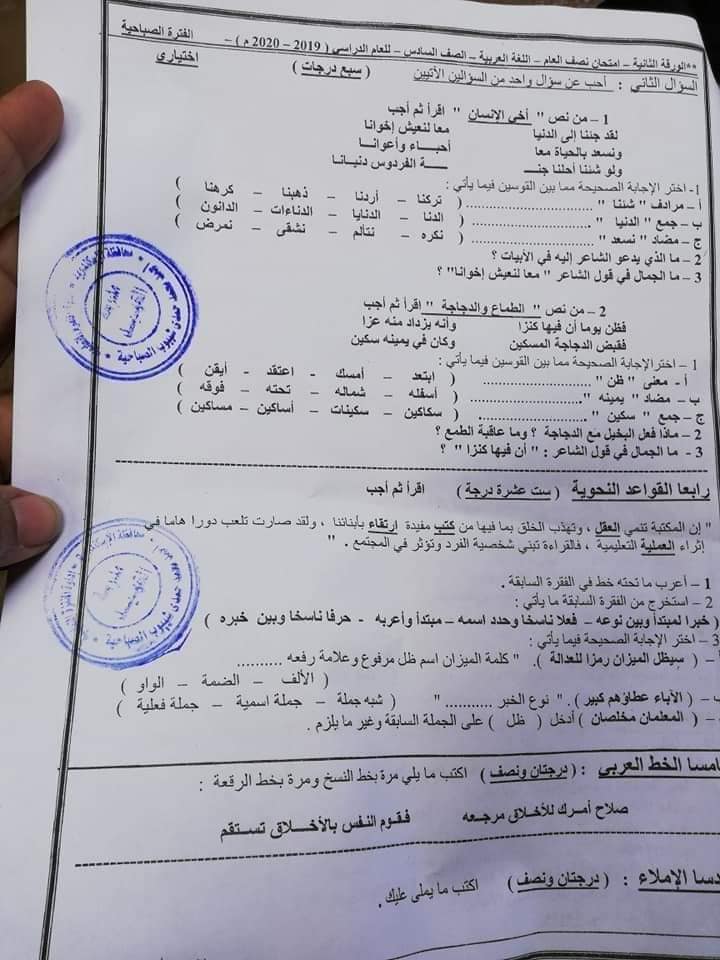 **الورقة الثانية – امتحان نصف العام – اللغة العربية – الصف السادس – للعام الدراسي ( 2019 – 2020 م ) – الفترة الصباحية
السؤال الثاني : أجب عن سؤال واحد من السؤالين الأتيين ( سبع درجات ) اختياري
1 – من نص " أخي الإنسان " اقرأ ثم أجب
لقد جئنا إلى الدنيا معا لنعيش إخوانا
ونسعد بالحياة معا أحبــاء وأعوانــا
ولو شئنا أحلنا جنــ ــة الفردوس دنيـانـا
1- اختر الإجابة الصحيحة مما بين القوسين فيما يأتي :
أ – مرادف " شئنا " .................. ( تركنا – أردنا – ذهبنا – كرهنا )
ب – جمع " الدنيا " .................. ( الدنا – الدنايا – الدناءات – الدانون )
ج – مضاد " نسعد " .................. ( نكره – نتألم – نشقى – نمرض )
2 – ما الذي يدعو الشاعر إليه في الأبيات ؟
3 – ما الجمال في قول الشاعر " معا لنعيش إخوانا" ؟
2 – من نص " الطماع والدجاجة " اقرأ ثم أجب
فظن يوما أن فيها كنزا وأنه يزداد منه عزا
فقبض الدجاجة المسكين وكان في يمينه سكين
1 – اختر الإجابة الصحيحة مما بين القوسين فيما يأتي :
أ - معنى " ظن " .................. ( ابتعد - أمسك - اعتقد - أيقن )
ب – مضاد " يمينه ".................. ( أسفله – شماله – تحته – فوقه )
ج – جمع " سكين ".................. ( سكاكين – سكينات – أساكين – مساكين )
2 – ماذا فعل البخيل مع الدجاجة ؟ وما عاقبة الطمع ؟
3 - ما الجمال في قول الشاعر : " أن فيها كنزا " ؟
رابعا القواعد النحوية ( ست عشرة درجة ) اقرأ ثم أجب
" إن المكتبة تنمي العقل ، وتهذب الخلق بما فيها من كتب مفيدة ارتقاء بأبنائنا ، ولقد صارت تلعب دورا هاما في
إثراء العملية التعليمية ، فالقراءة تبني شخصية الفرد وتؤثر في المجتمع . "
1 – أعرب ما تحته خط في الفقرة السابقة .
2 – استخرج من الفقرة السابقة ما يأتي :
( خبرا لمبتدأ وبين نوعه – فعلا ناسخا وحدد اسمه – مبتدأ وأعربه - حرفا ناسخا وبين خبره )
3 – اختر الإجابة الصحيحة فيما يأتي :
– ( سيظل الميزان رمزا للعدالة ). " كلمة الميزان اسم ظل مرفوع وعلامة رفعه ..........
( الألف – الضمة – الواو )
– ( الآباء عطاؤهم كبير ) . " نوع الخبر ........... " ( شبه جملة – جملة اسمية – جملة فعلية )
– ( المعلمان مخلصان ) أدخل ( ظل ) على الجملة السابقة وغير ما يلزم .
امسا الخط العربي : ( درجتان ونصف ) اكتب ما يلي مرة بخط النسخ ومرة بخط الرقعة :
صلاح أمرك للأخلاق مرجعه فقوم النفس بالأخلاق تستقم
دسا الإملاء : ( درجتان ونصف ) اكتب ما يملى عليك .